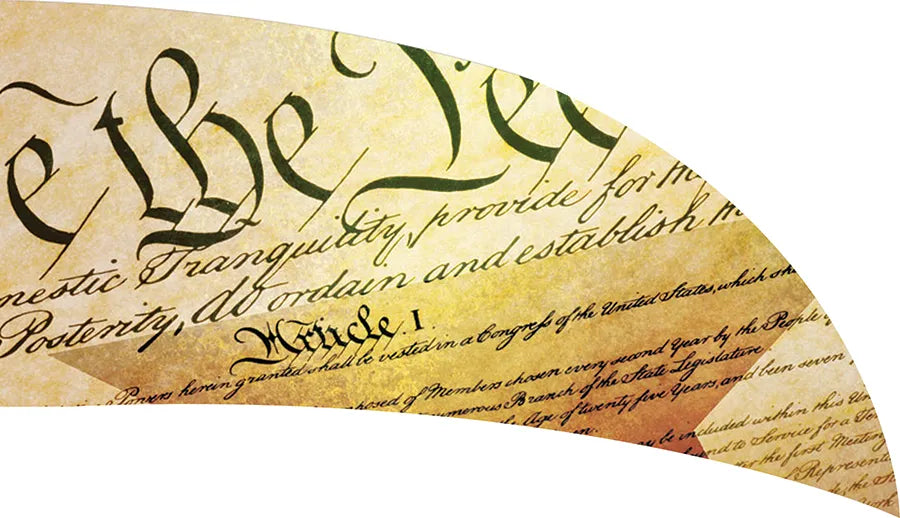 e the Pee
mestic Tranquility, provide for th
Posterity, do ordain and establish th
Article I.
Powers herein granted shall be vested in a Congress of the United States, which sha
posed of Members chosen every second Year by the People
umerous Branch of the State Legislature
the Age of twenty five Years, and been seven
en.
may be included within this Un
nd to Service for a Ter
ter the first Meeting
Represent
the St